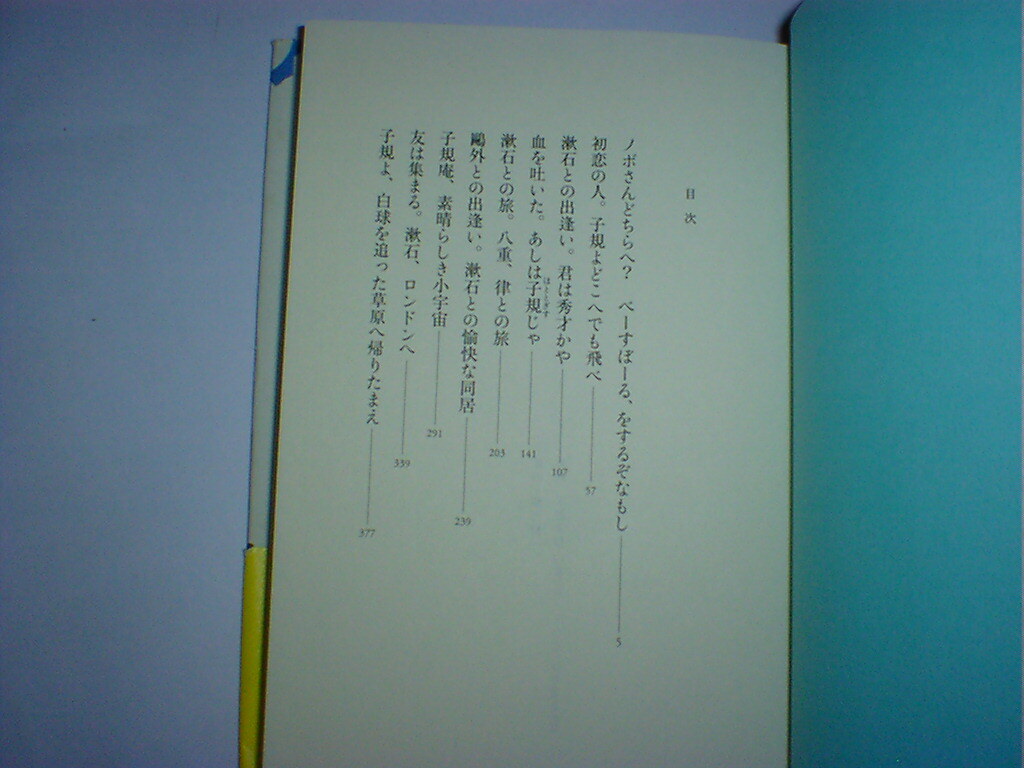 目次
ノボさんどちらへ？　べーすぼーる、をするぞなもし 5
初恋の人。子規よどこへでも飛べ 57
漱石との出逢い。君は秀才かや 107
血を吐いた。あしは子規じゃ 141
ほととぎす
漱石との旅。八重、律との旅 203
鷗外との出逢い。漱石との愉快な同居 239
子規庵、素晴らしき小宇宙 291
友は集まる。漱石、ロンドンへ 339
子規よ、白球を追った草原へ帰りたまえ 377